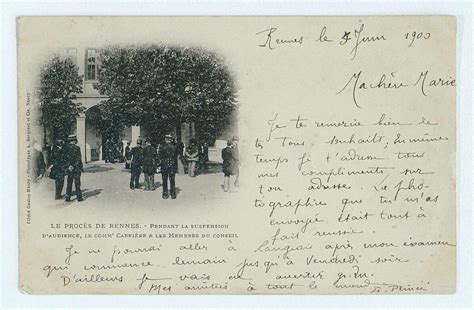 Rennes le 5 Juin 1900
Ma chère Marie
Je te remercie bien de
tes bons souhaits, en même
temps je t'adresse tous
mes compliments sur
ton adresse. La pho-
tographies que tu m'as
envoyé était tout à
fait réussie.
Cliché Gaston
LE PROCÈS DE RENNES. - PENDANT LA SUSPENSION
D'AUDIENCE, LE COMMt CARRIÈRE & LES MEMBRES DU CONSEIL
Je ne pourrai aller à après mon examen
qui commence demain jusqu'à Vendredi soir.
D'ailleurs je vais
Mes amitiés à tout le monde